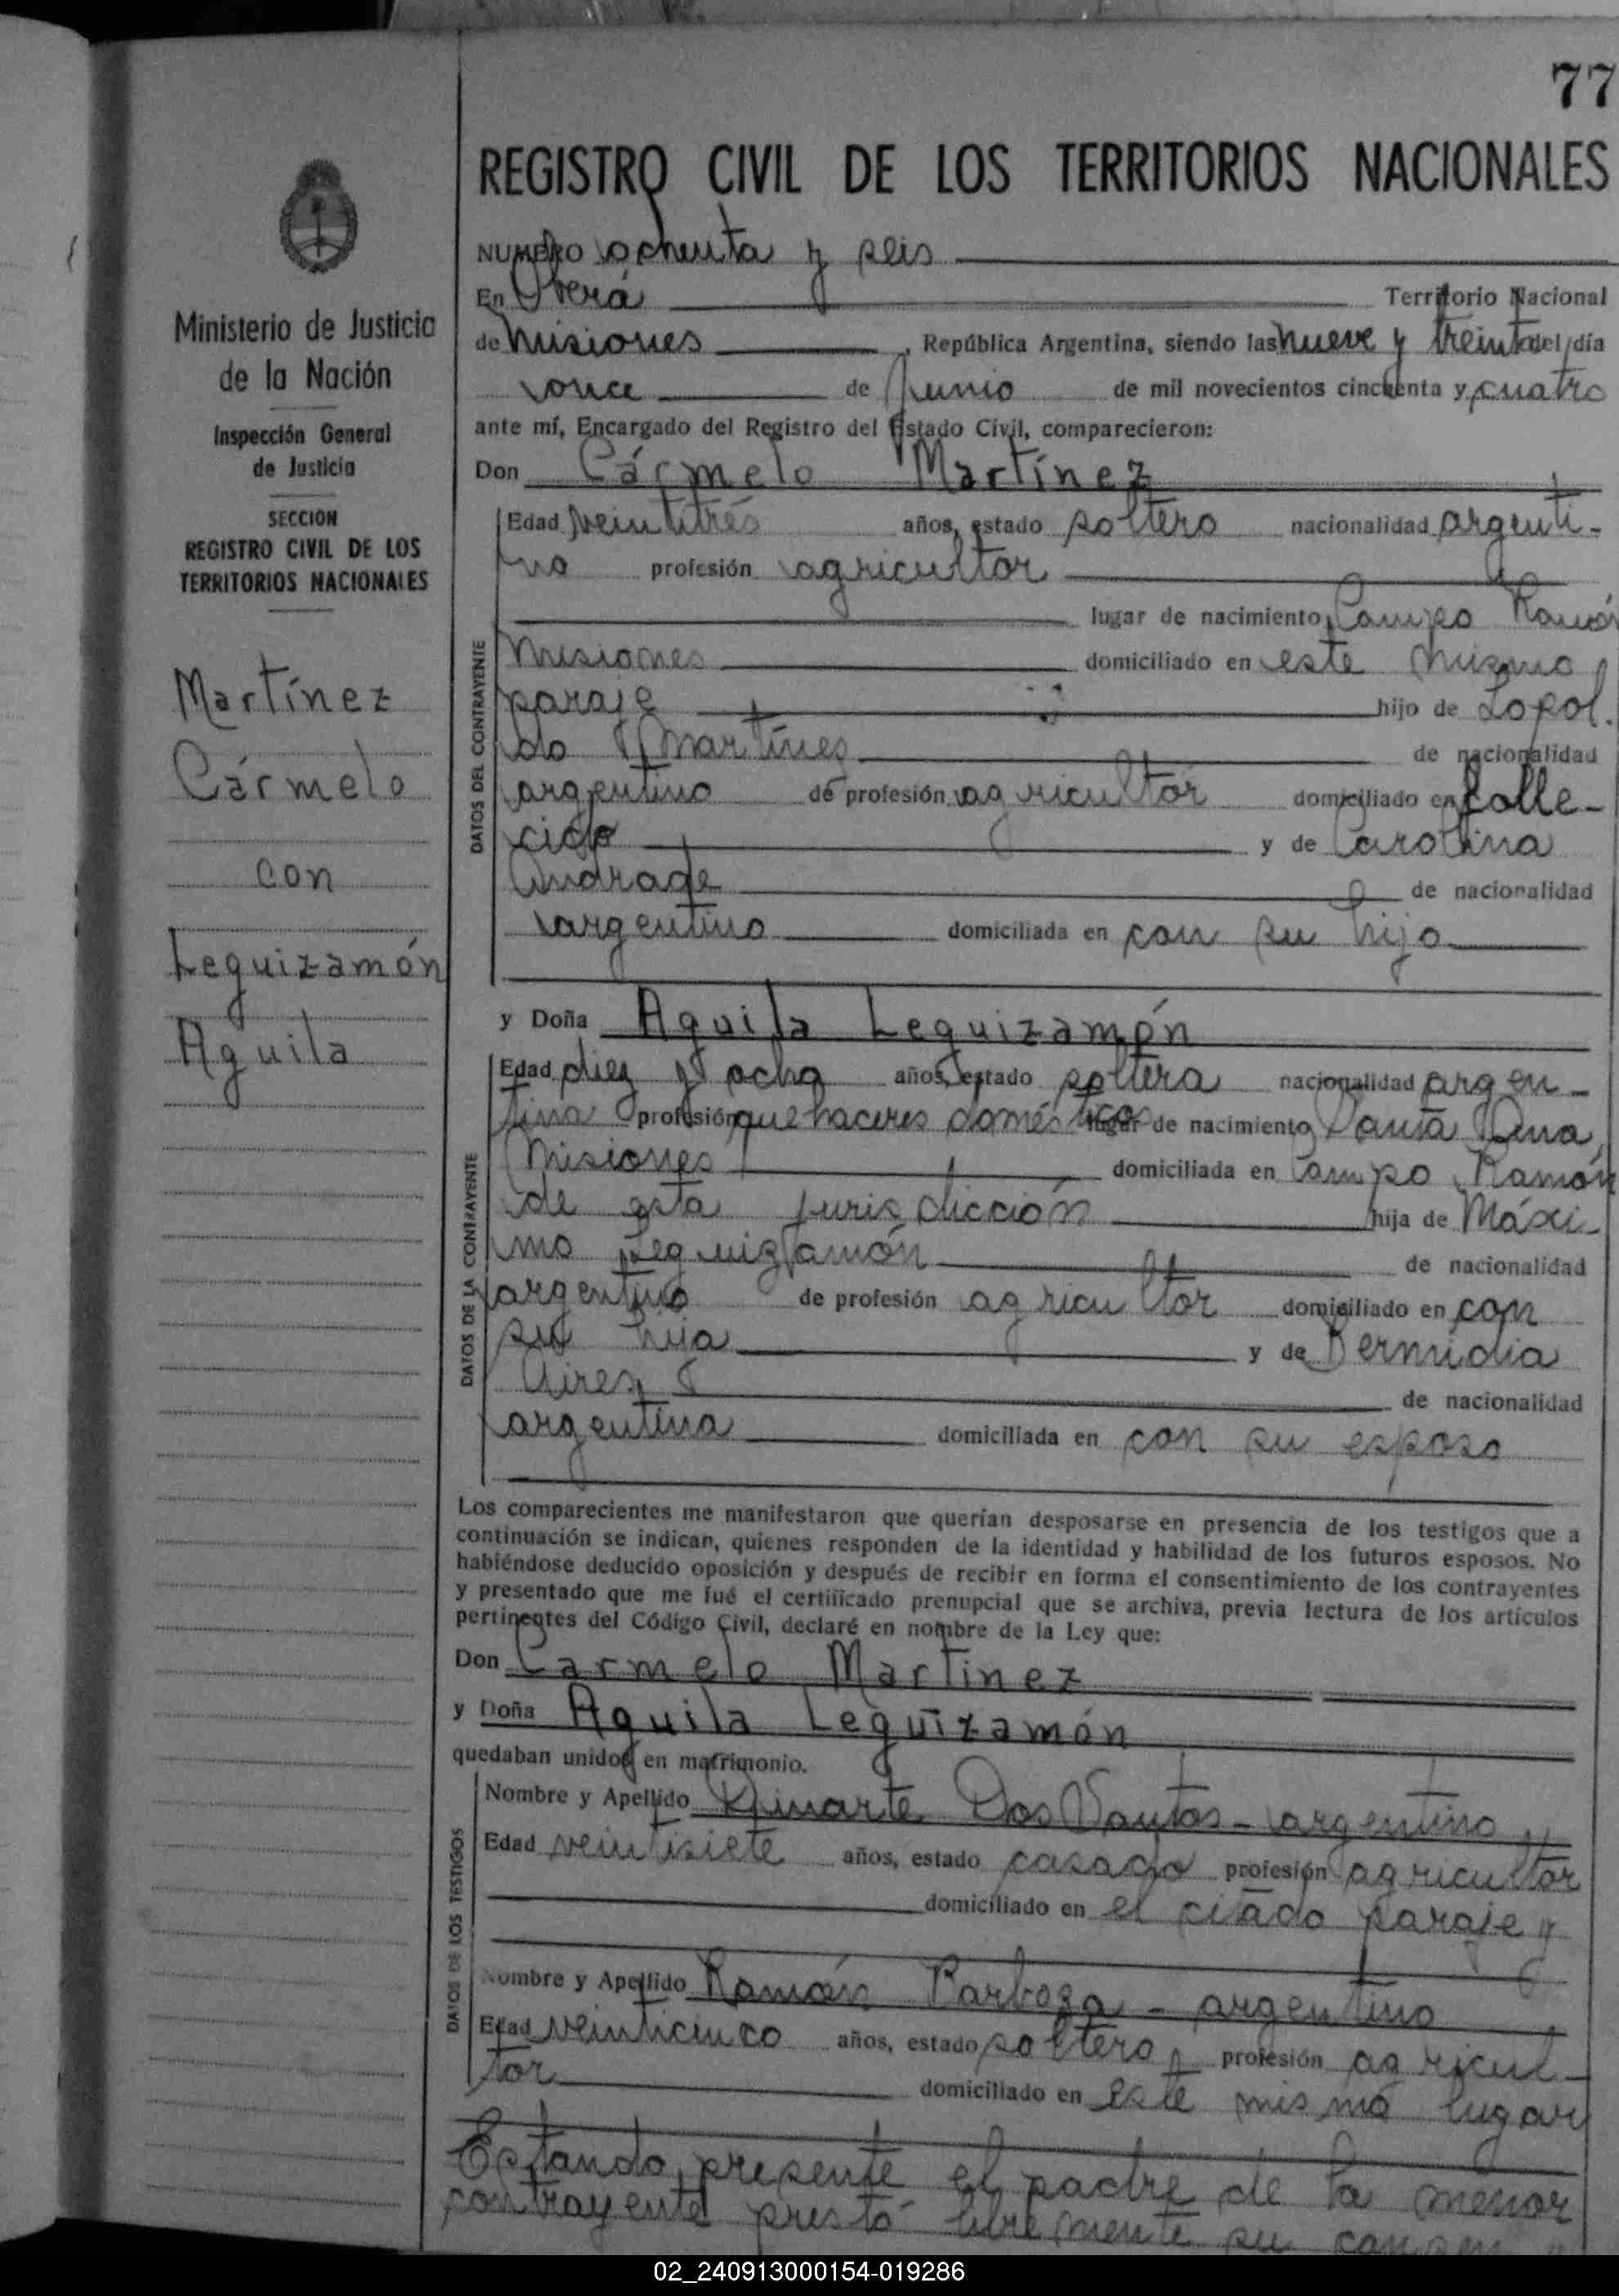 77
REGISTRO CIVIL DE LOS TERRITORIOS NACIONALES
NUMERO ochenta y seis
En Oberá Territorio Nacional
de Misiones, República Argentina, siendo las nueve y treinta del día
once de Junio de mil novecientos cincuenta y cuatro
ante mí, Encargado del Registro del Estado Civil, comparecieron:
Don Cármelo Martínez
Edad veintitrés años, estado soltero nacionalidad argenti-
no profesión agricultor
lugar de nacimiento Campo Ramón
Misiones domiciliado en este mismo
paraje hijo de Lopol.
do Martínes de nacionalidad
argentino de profesión agricultor domiciliado en falle-
cido y de Carolina
Andrade de nacionalidad
argentino domiciliada en con su hijo
y Doña Aguila Leguizamón
Edad diez y ocho años, estado soltera nacionalidad argen-
tina profesión quehaceres domésticos lugar de nacimiento Santa Ana,
Misiones domiciliada en Campo Ramón
de esta jurisdicción hija de Máxi-
mo Leguizamón de nacionalidad
argentino de profesión agricultor domiciliado en con
su hija y de Bermidia
Aires de nacionalidad
argentina domiciliada en con su esposo
Los comparecientes me manifestaron que querían desposarse en presencia de los testigos que a
continuación se indican, quienes responden de la identidad y habilidad de los futuros esposos. No
habiéndose deducido oposición y después de recibir en forma el consentimiento de los contrayentes
y presentado que me fué el certificado prenupcial que se archiva, previa lectura de los artículos
pertinentes del Código Civil, declaré en nombre de la Ley que:
Don Carmelo Martinez
y Doña Aguila Leguizamón
quedaban unidos en matrimonio.
Nombre y Apellido Duarte Dos Santos - argentino
Edad veintisiete años, estado casado profesión agricultor
domiciliado en el citado paraje y
Nombre y Apellido Ramón Barboza - argentino
Edad veinticinco años, estado soltero, profesión agricul-
tor domiciliado en este mismo lugar
Estando presente el padre de la menor
contrayente prestó libremente su consen
Ministerio de Justicia
de la Nación
Inspección General
de Justicia
SECCION
REGISTRO CIVIL DE LOS
TERRITORIOS NACIONALES
Martínez
Cármelo
con
Leguizamón
Aguila
DATOS DEL CONTRAYENTE
DATOS DE LA CONTRAYENTE
DATOS DE LOS TESTIGOS
02_240913000154-019286